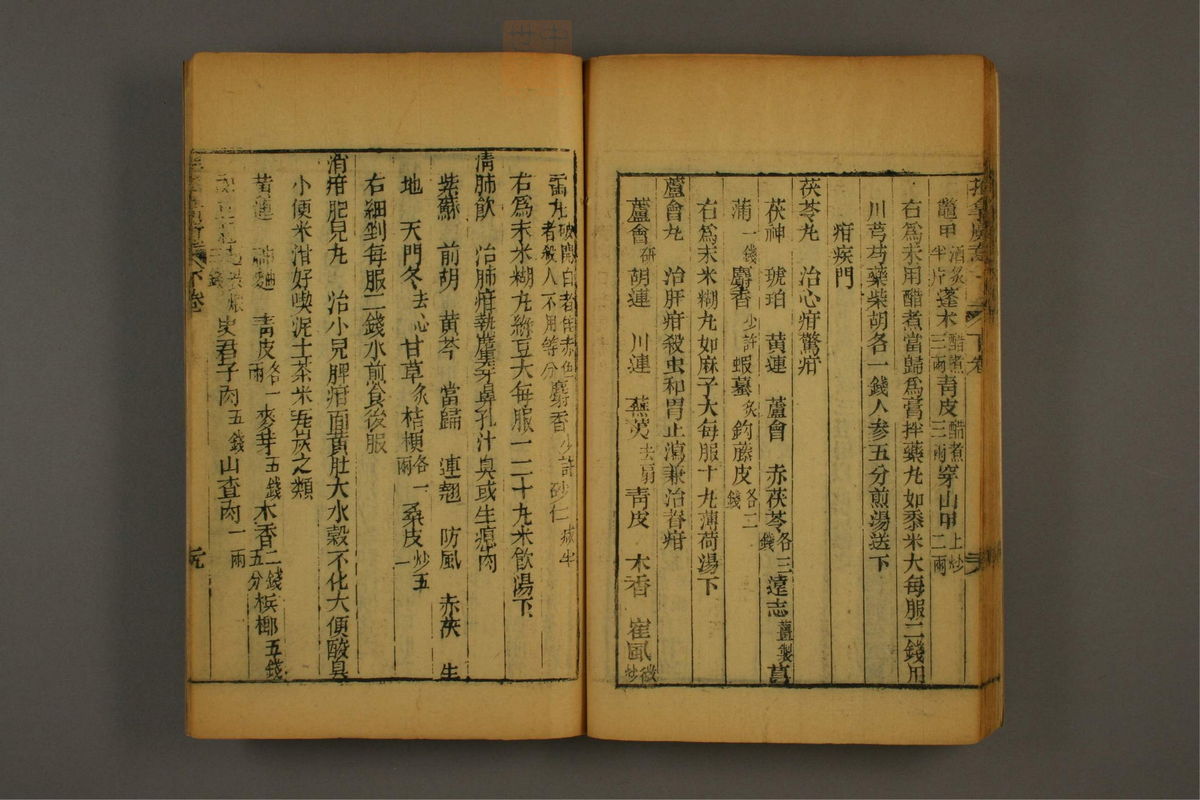 鼈甲酒炙半斤蓬朮醋煮三兩靑皮醋煮三兩穿山甲上炒二兩
右為末用醋煮當歸為膏拌藥丸如黍米大每服二錢用
川芎芍藥柴胡各一錢人参五分煎湯送下
疳疾門
茯苓丸　治心疳驚疳
茯神　琥珀　黄連　蘆會　赤茯苓各三錢遠志薑製菖
蒲一錢麝香少許蝦蟇炙鈎藤皮各二錢
右為末米糊丸如麻子大每服十丸薄荷湯下
蘆會丸　治肝疳殺虫和胃止瀉兼治脊疳
蘆會研胡連　川連　蕪荑去扇靑皮　木香　崔䖝微炒
雷丸破開白者用赤色者殺人不用等分麝香少許砂仁
右為末米糊丸綠豆大每服一二十丸米飲湯下
淸肺飲　治肺疳執蟨穿鼻孔汁臭或生瘜肉
紫蘇　前胡　黄芩　當歸　連翹　防風　赤茯　生
地　天門冬去心甘草炙桔梗各一兩桑皮炒五
右細剉每服二錢水煎食後服
消疳肥兒丸　治小兒脾疳面黃肚大水穀不化大便酸臭
小便米泔好喫泥土茶米瓦炭之類
黄連　神麯　靑皮各一兩麥芽五錢木香二錢五分梹榔五錢
史君子肉五錢山查肉一兩
下卷